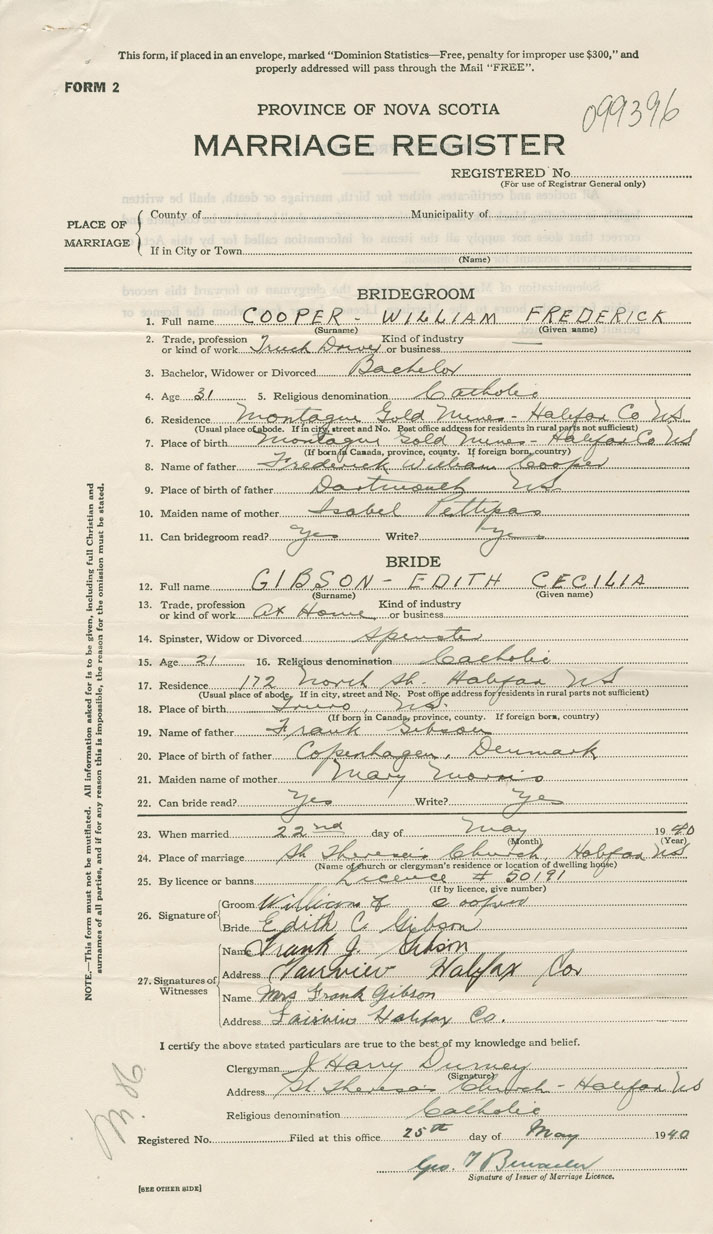 This form, if placed in an envelope, marked "Dominion Statistics—Free, penalty for improper use $300," and
properly addressed will pass through the Mail "FREE".
FORM 2
PROVINCE OF NOVA SCOTIA
099396
MARRIAGE REGISTER
REGISTERED No.
(For use of Registrar General only)
PLACE OF MARRIAGE
County of Municipality of
If in City or Town
(Name)
BRIDEGROOM
1. Full name COOPER - WILLIAM FREDERICK
(Surname) (Given name)
2. Trade, profession or kind of work Truck Driver Kind of industry or business —
3. Bachelor, Widower or Divorced Bachelor
4. Age 31 5. Religious denomination Catholic
6. Residence Montague Gold Mines - Halifax Co NS
(Usual place of abode. If in city, street and No. Post office address for residents in rural parts not sufficient)
7. Place of birth Montague Gold Mines - Halifax Co NS
(If born in Canada, province, county. If foreign born, country)
8. Name of father Frederick William Cooper
9. Place of birth of father Dartmouth NS
10. Maiden name of mother Isabel Pettipas
11. Can bridegroom read? Yes Write? Yes
BRIDE
12. Full name GIBSON - EDITH CECILIA
(Surname) (Given name)
13. Trade, profession or kind of work At Home Kind of industry or business
14. Spinster, Widow or Divorced Spinster
15. Age 21 16. Religious denomination Catholic
17. Residence 172 North St. Halifax NS
(Usual place of abode. If in city, street and No. Post office address for residents in rural parts not sufficient)
18. Place of birth Truro, NS.
(If born in Canada, province, county. If foreign born, country)
19. Name of father Frank Gibson
20. Place of birth of father Copenhagen, Denmark
21. Maiden name of mother Mary Morris
22. Can bride read? Yes Write? Yes
23. When married 22nd day of May 1940
(Month) (Year)
24. Place of marriage St. Theresa's Church, Halifax NS
(Name of church or clergyman's residence or location of dwelling house)
25. By licence or banns Licence # 50191
(If by licence, give number)
26. Signature of
Groom William F Cooper
Bride Edith C. Gibson
27. Signatures of Witnesses
Name Frank J. Gibson
Address Fairview Halifax Co
Name Mrs Frank Gibson
Address Fairview Halifax Co.
I certify the above stated particulars are true to the best of my knowledge and belief.
Clergyman J. Harry Durney
(Signature)
Address St. Theresa's Church - Halifax NS
Religious denomination Catholic
Registered No. Filed at this office 25th day of May 1940
Geo. T
Signature of Issuer of Marriage Licence.
[SEE OTHER SIDE]
NOTE.—This form must not be mutilated. All information asked for is to be given, including full Christian and
surnames of all parties, and if for any reason this is impossible, the reason for the omission must be stated.